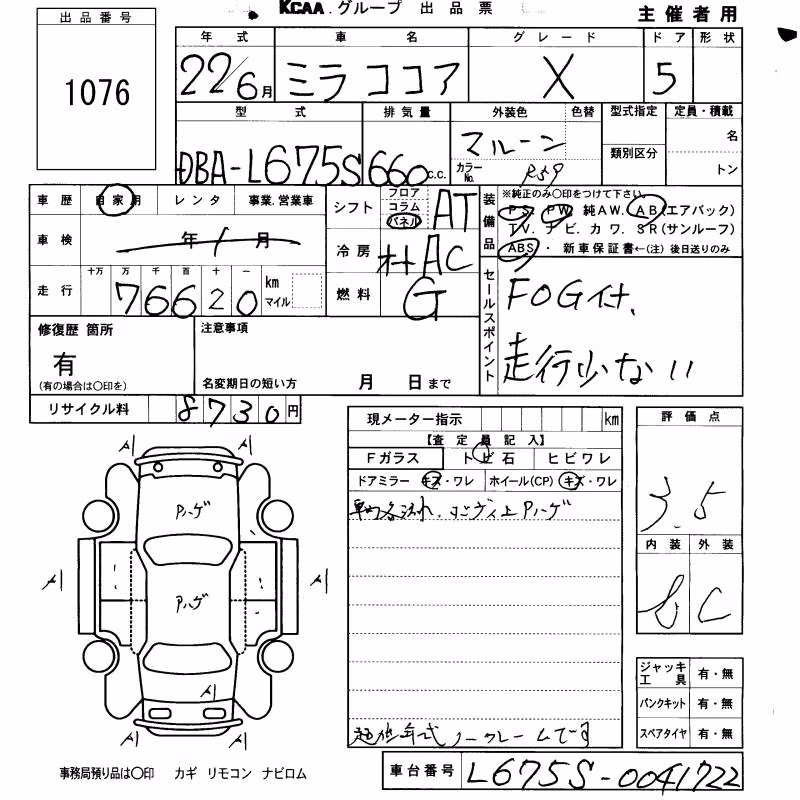 KCAA.グループ 出品票
主催者用
出品番号
1076
年式 車名 グレード ドア 形状
22/6月 ミラココア X 5
型式 排気量 外装色 色替 型式指定 定員・積載
DBA-L675S 660c.c. マルーン
カラーNo. R59
名
類別区分
トン
車歴 自家用 レンタ 事業.営業車
シフト フロア コラム パネル AT
装備品
※純正のみ〇印をつけて下さい
PS. PW. 純AW. AB(エアバック)
TV. ナビ. カワ. SR(サンルーフ)
ABS・ 新車保証書←(注)後日送りのみ
車検 年/月
冷房 オートAC
走行 十万 万 千 百 十 一
76620 km マイル
燃料 G
セールスポイント
FOG付、
走行少ない!!
修復歴 箇所
有
(有の場合は〇印を)
注意事項
名変期日の短い方 月 日まで
リサイクル料 8730円
現メーター指示 km
【査定員記入】
Fガラス トビ石 ヒビワレ
ドアミラー キズ・ワレ ホイール(CP) キズ・ワレ
Pハゲ
評価点
3.5
内装 外装
C
A1
A1
Pハゲ
A1
A1
A1
A1
A1
ジャッキ工具 有・無
パンクキット 有・無
スペアタイヤ 有・無
年式 ノークレームです
事務局預り品は〇印 カギ リモコン ナビロム
車台番号 L675S-0041722